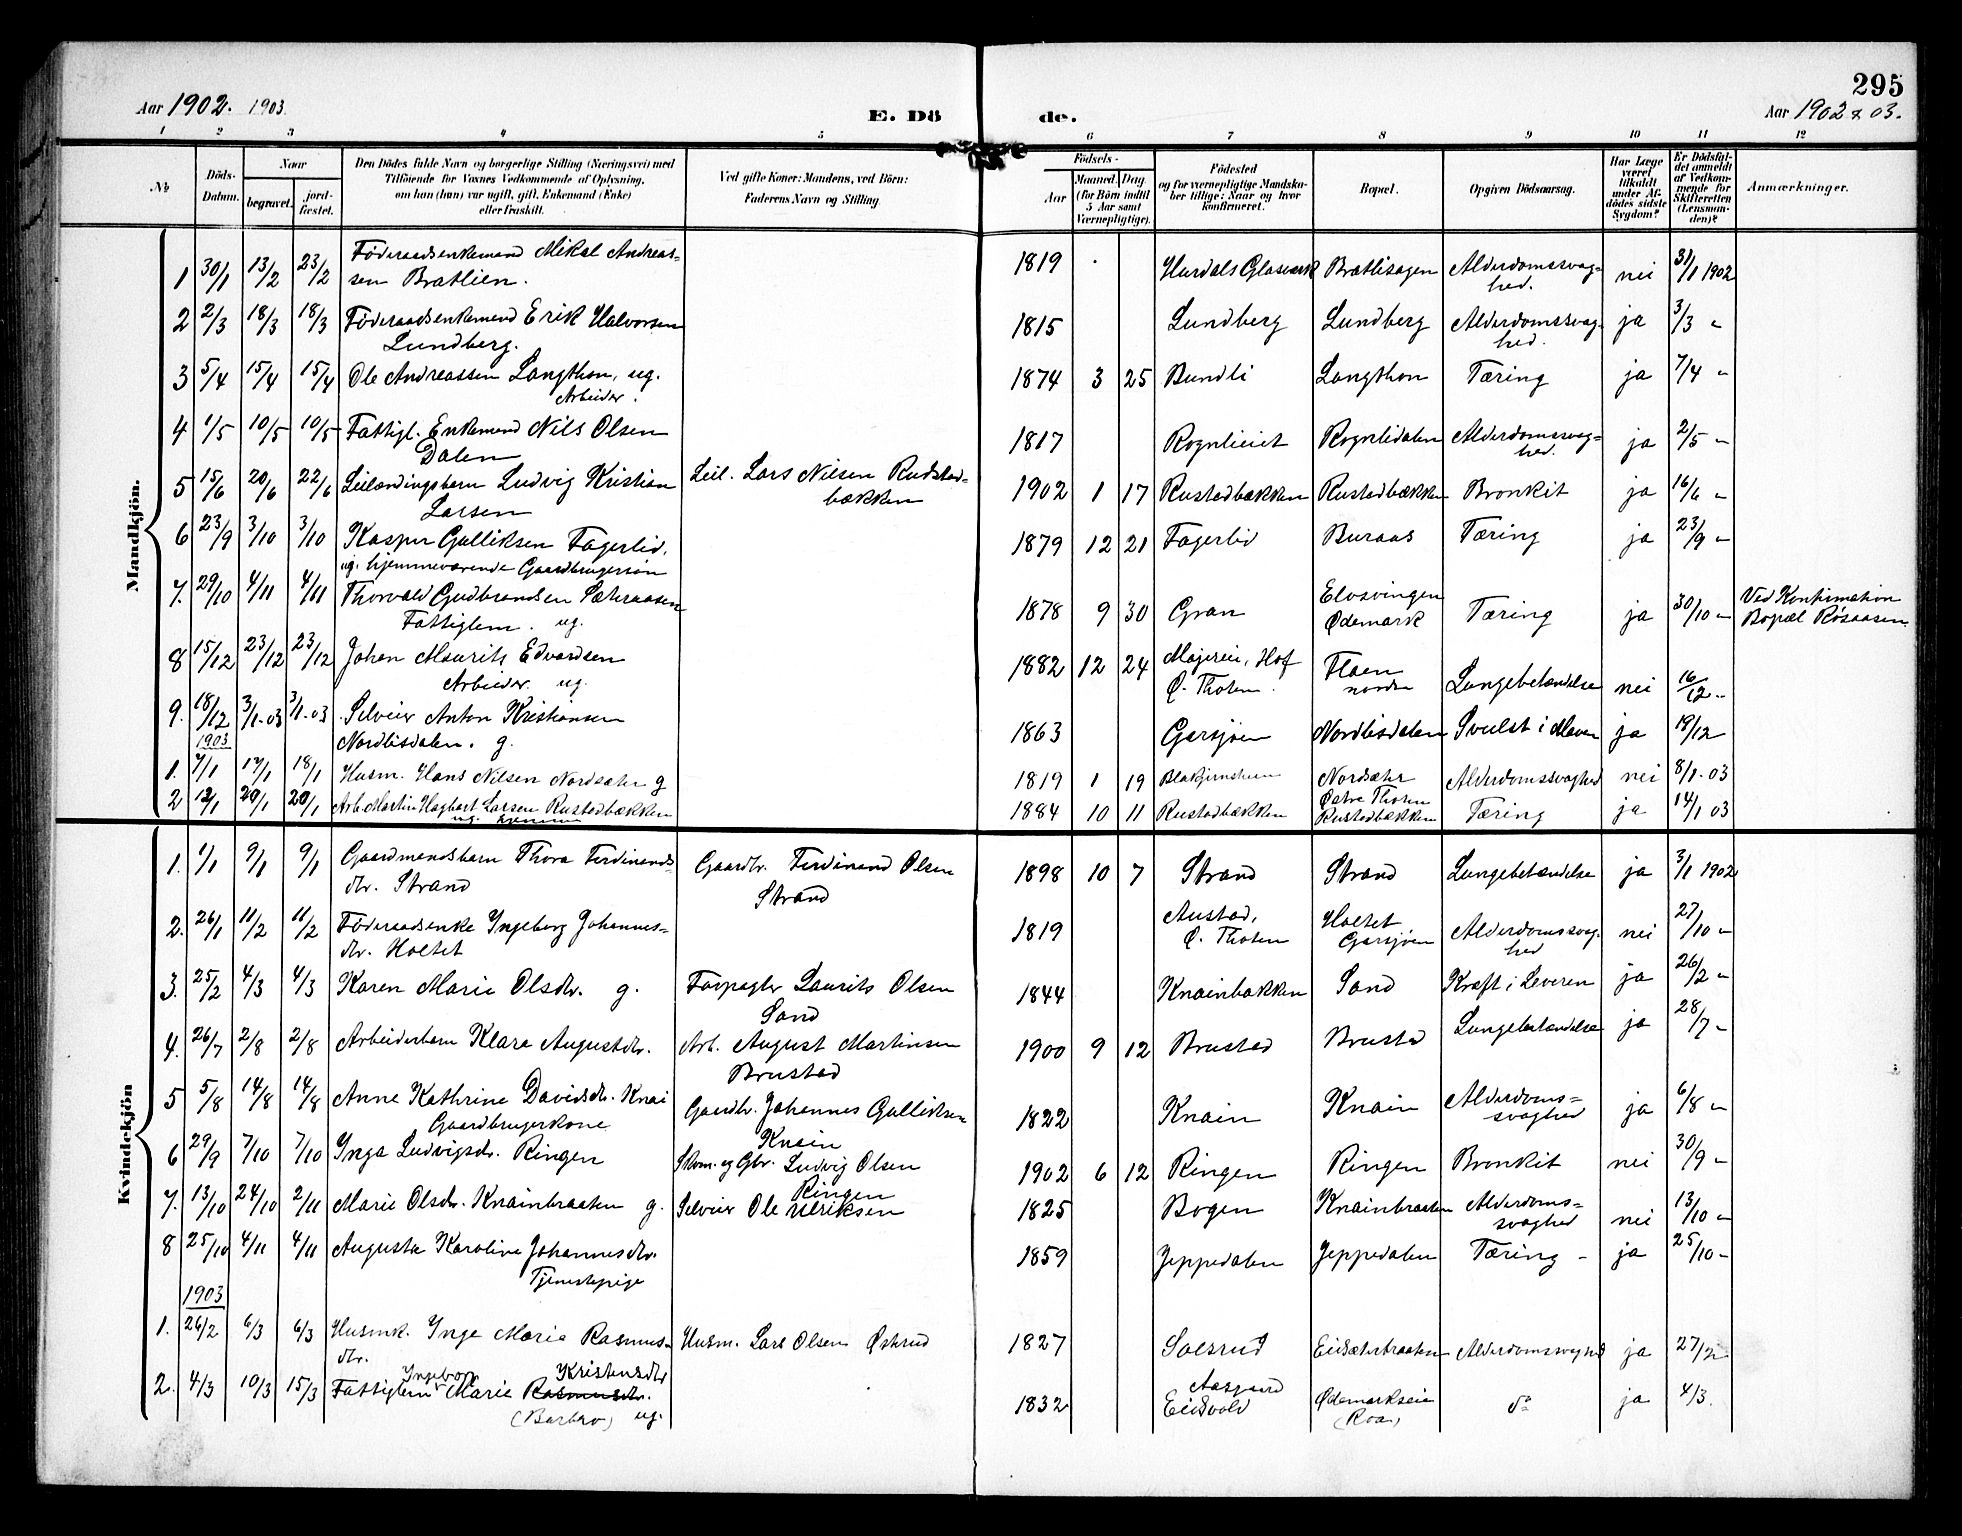 295
Aar 1902. 1903.
E. Dö
de.
Aar 1902 & 03.
1 2 3 4 5 6 7 8 9 10 11 12
No
Döds-Datum.
Naar
begravet.
jord-fæstet.
Den Dödes fulde Navn og borgerlige Stilling (Næringsvei) med
Tilföiende for Voxnes Vedkommende af Oplysning,
om han (hun) var ugift, gift, Enkemand (Enke)
eller fraskilt.
Ved gifte Koner: Mandens, ved Börn:
Faderens Navn og Stilling.
Födsels-
Aar
Maaned. Dag.
(for Börn indtil
5 Aar samt
Værnepligtige).
Födested
og for værnepligtige Mandska-
ber tillige: Naar og hvor
konfirmeret.
Bopæl.
Opgiven Dödsaarsag.
Har Læge
været
tilkaldt
under Af-
dödes sidste
Sygdom?
Er Dödsfal-
det anmeldt
af Vedkom-
mende for
Skifteretten
(Lensman-
den)?
Anmærkninger.
Mandkjön.
1 30/1 13/2 23/2 Föderaadsenkemand Mikal Andreas-
sen Bratlien. 1819 Hurdals Glasværk Bratlihagen Alderdomssvag-
hed. nei 31/1 1902
2 2/3 18/3 18/3 Föderaadsenkemand Erik Halvorsen
Lundberg. 1815 Lundberg Lundberg Alderdomssvag-
hed. ja 3/3 "
3 5/4 15/4 15/4 Ole Andreassen Langthon, ug.
Arbeider. 1874 3 25 Bundli Langthon Tæring ja 7/4 "
4 1/5 10/5 10/5 Fattigl. Enkemand Nils Olsen
Dalen 1817 Rognlieiet Rognlidalen Alderdomssvag-
hed. ja 2/5 "
5 15/6 20/6 22/6 Leilændingsbarn Ludvig Kristian
Larsen Leil. Lars Nilsen Rudstad-
bækken 1902 1 17 Rustadbækken Rustadbækken Bronkit ja 16/6 "
6 23/9 3/10 3/10 Kasper Gulliksen Fagerlid,
ug. hjemmeværende Gaardbrugersön 1879 12 21 Fagerlid Buraas Tæring ja 23/9 "
7. 29/10 4/11 4/11 Thorvald Gudbrandsen Sætraasen
Fattiglem. ug. 1878 9 30 Gran Elvsvingen
Ødemark Tæring ja 30/10 " Ved Konfirmation
Bopæl Røsaasen.
8 15/12 23/12 23/12 Johan Maurits Edvardsen
Arbeider. ug. 1882 12 24 Majerei, Hof
Ø. Thoten. Flaen
nordre Lungebetændelse nei 16/12 "
9. 18/12 3/1-03 3/1-03 Selveier Anton Kristiansen
Nordlisdalen. g. 1863 Garsjøen Nordlisdalen Svulst i Maven ja 19/12
1903
1. 7/1 17/1 18/1 Husm. Hans Nilsen Nordsæter g 1819 1 19 Nordsæter Alderdomssvaghed nei 8/1-03
2 12/1 20/1 20/1 Arb. Martin Hagbart Larsen Rustadbækken
ug. hjemme 1884 10 11 Rustadbækken Østre Thoten
Rustadbækken Tæring ja 14/1 03
Kvindekjön
1. 1/1 9/1 9/1 Gaardmandsbarn Thora Ferdinands-
dtr. Strand Gaardbr. Ferdinand Olsen
Strand 1898 10 7 Strand Strand Lungebetændelse ja 3/1 1902
2. 26/1 11/2 11/2 Föderaadsenke Ingeborg Johannes-
dtr. Holtet 1819 Austad,
Ø. Thoten Holtet
Garsjøen Alderdomssvag-
hed nei 27/10 "
3. 25/2 4/3 4/3 Karen Marie Olsdtr. g. Forpagter Laurits Olsen
Sand 1844 Knainbakken Sand Kræft i Leveren ja 26/2 "
4. 26/7 2/8 2/8 Arbeiderbarn Klara Augustdtr. Arb. August Martinsen
Brustad 1900 9 12 Brustad Brustad Lungebetændelse ja 28/7 "
5 5/8 14/8 14/8 Anne Kathrine Davidsdtr. Knai
Gaardbrugerkone Gaardbr. Johannes Gulliksen
Knain 1822 Knain Knain Alderdoms-
svaghed ja 6/8 "
6 29/9 7/10 7/10 Inga Ludvigsdtr. Ringen Skom. og Gbr. Ludvig Olsen
Ringen 1902 6 12 Ringen Ringen Bronkit nei 30/9 "
7. 13/10 24/10 2/11 Marie Olsdtr. Knainbraaten g. Selveier Ole Ulriksen 1825 Bogen Knainbraaten Alderdoms-
svaghed nei 13/10 "
8 25/10 4/11 4/11 Augusta Karoline Johannesdtr.
Tjenestepige 1859 Jeppedalen Jeppedalen Tæring - ja 25/10 -
1903
1. 26/2 6/3 6/3 Husmk. Inge Marie Rasmus-
dtr. Husm. Lars Olsen Østrud 1827 Solsrud Eidsæterbraaten Alderdomssvaghed ja 27/2
2. 4/3 10/3 15/3 Fattiglem Ingeborg Marie Rasmusdtr. Kristensdtr
(Barbro) ug. 1832 Aasgaard
Eidsvold Ødemarkseie
(Roa) do ja 4/3.